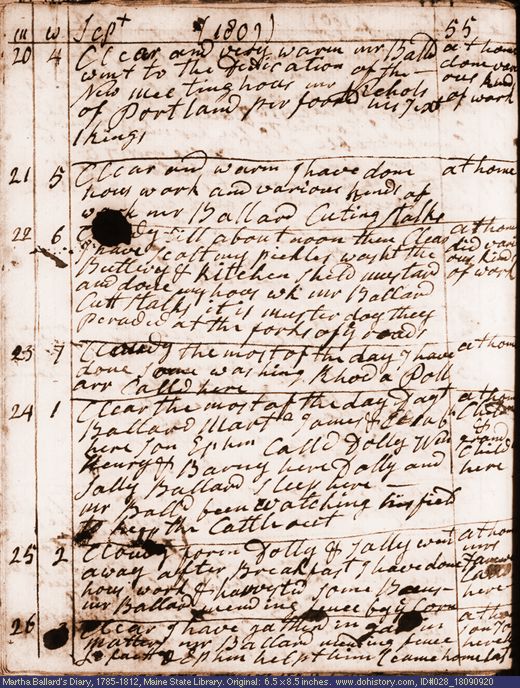 m w Sept (1809) 55
20 4 Clear and very warm mr Ballard at home
went to the Dedication of the done vari
New meeting hous mr Nichols ous kinds
of Portland performd his Text of work
1 kings
21 5 Clear and warm I have done at home
hous work and various kinds of
work mr Ballard Cuting stalks
22 6 till about noon then Clear at home
I have scalt my pickles washt the did vari
Buttery & kitchen shell mustard ous kinds
and done my hous wk mr Ballard of work
Cutt stalks it is muster day they
Peraded at the forks of ye roads
23 7 Cloudy the most of the day I have at home
done some washing Rhoda Poll
ard Calld here
24 1 Clear the most of the day at home
Ballard James &
here Son Ephm Calld Dolly Wm grand
Henry & Barny here Dolly and Child
Sally Ballard sleep here here
mr Ballard been watching his field
to keep the Cattle out
25 2 Cloudy morn Dolly & Sally went at home
away after Breakfast I have done mrs
hous work & harvestd some Beans
mr Ballard mending fence by ye Corn here
26 3 Clear I have gathered in garden at home
matters mr Ballard mending fence
Ephm help him I came home last
Martha Ballard's Diary, 1785-1812, Maine State Library. Original: 6.5 x 8.5 inches. www.dohistory.org, ID#028_18090920